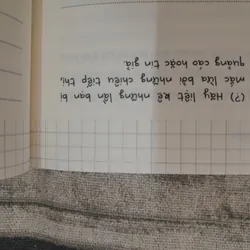 (?) Hãy liệt kê những lần bạn bị
mắc lừa bởi những chiêu tiếp thị,
quảng cáo hoặc tin giả.